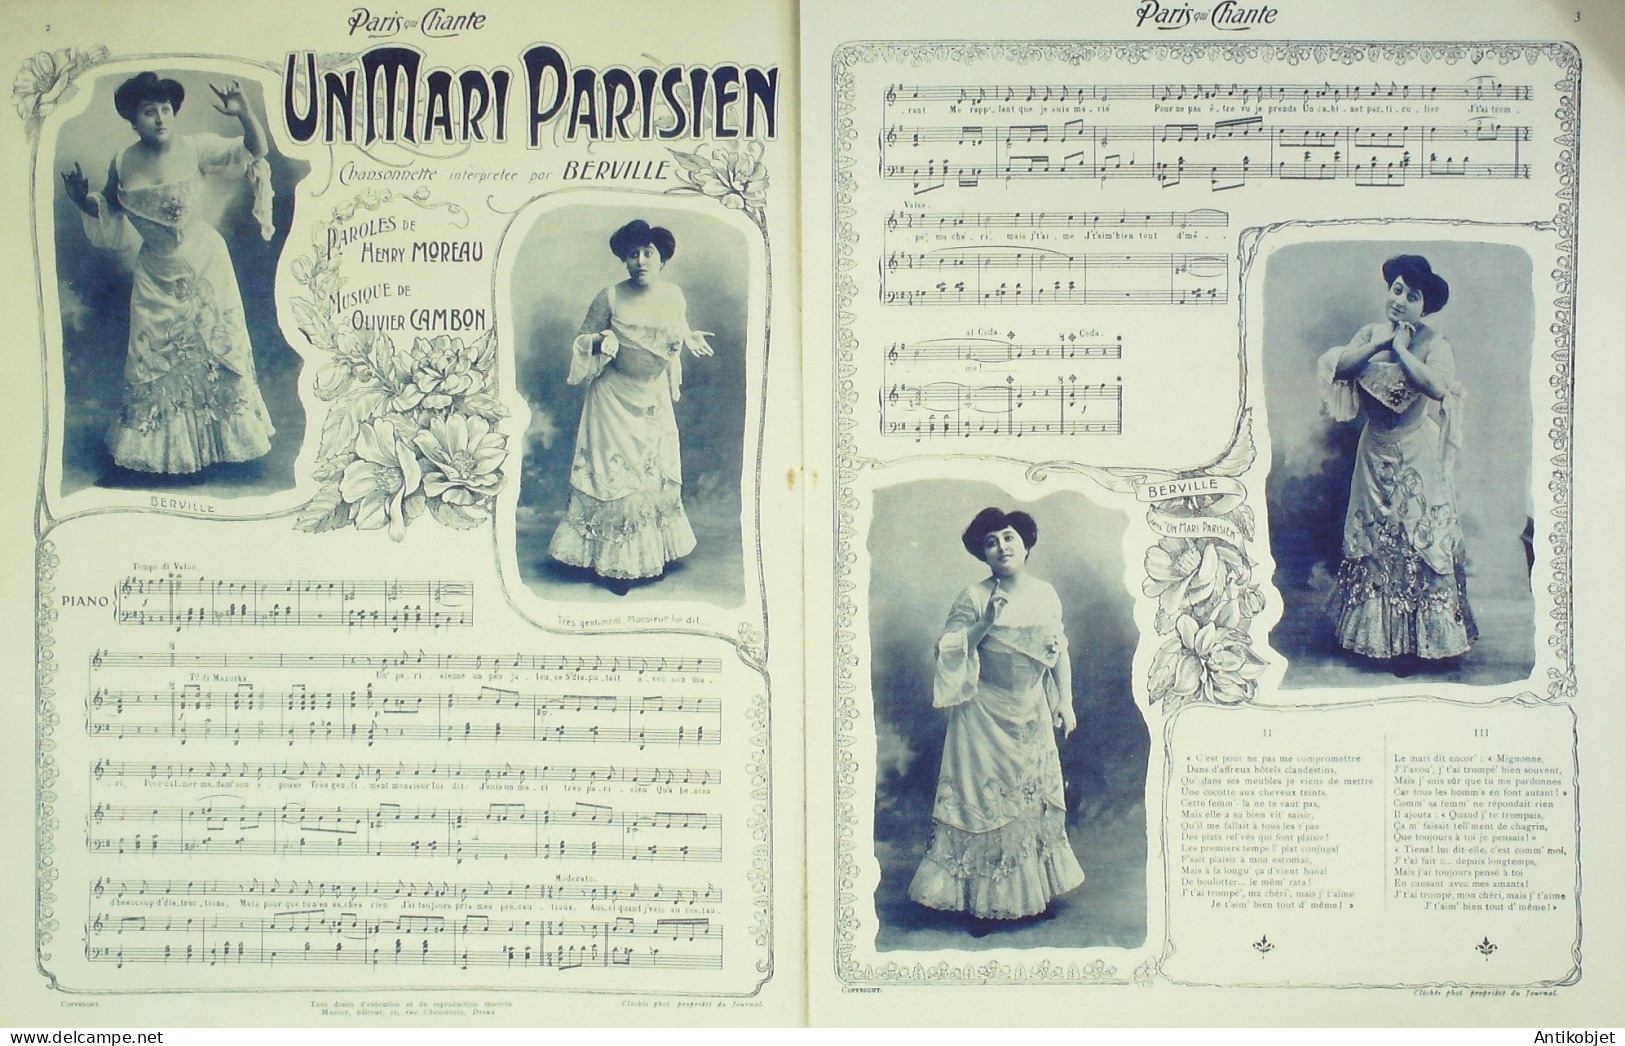 2
Paris qui Chante
UN MARI PARISIEN
Chansonnette interprétée par BERVILLE
PAROLES DE
HENRY MOREAU
MUSIQUE DE
OLIVIER CAMBON
BERVILLE
Très gentiment, Monsieur lui dit...
Tempo di Valse.
PIANO
Tº di Mazurka.
Un' pa - ri - sienne un peu ja - lou, se S'dis, pu - tait a - vec son ma -
ri, Pour cal, mer ma, dam' son é - pouse Très gen, ti - ment monsieur lui dit: J'suis un ma - ri très pa - ri - sien Qu'a be - soin
Moderato.
d'beaucoup d'dis, trac - tions, Mais pour que tu n'en saches rien J'ai toujours pris mes pré, cau - tions, Aus, si quand j'vais au res, tau -
COPYRIGHT.
Tous droits d'exécution et de reproduction réservés.
Clichés phot propriété du Journal.
Paris qui Chante
3
rant Me rapp', lant que je suis ma - rié Pour ne pas ê - tre vu je prends Un ca, bi - net par - ti - cu - lier J't'ai trom -
Valse.
pé, ma ché - ri, mais j't'ai - me J't'aim' bien tout d'mê -
al Coda. Coda.
me!
BERVILLE
dans "UN MARI PARISIEN"
II
« C'est pour ne pas me compromettre
Dans d'affreux hôtels clandestins,
Qu' dans ses meubles je viens de mettre
Une cocotte aux cheveux teints.
Cette femm'- là ne te vaut pas,
Mais elle a su bien vit' saisir,
Qu'il me fallait à tous les r'pas
Des plats rel'vés qui font plaisir !
Les premiers temps l' plat conjugal
F'sait plaisir à mon estomac,
Mais à la longu' ça d'vient banal
De boulotter... le mêm' rata !
J' t'ai trompé', ma chéri', mais j' t'aime
Je t'aim' bien tout d' même ! »
III
Le mari dit encor' : « Mignonne,
J' l'avou', j' t'ai trompé' bien souvent,
Mais j' suis sûr que tu me pardonnes
Car tous les homm's en font autant ! »
Comm' sa femm' ne répondait rien
Il ajouta : « Quand j' te trompais,
Ça m' faisait tell'ment de chagrin,
Que toujours à toi je pensais ! »
« Tiens ! lui dit-elle, c'est comm' moi,
J' t'ai fait c... depuis longtemps,
Mais j'ai toujours pensé à toi
En causant avec mes amants !
J' t'ai trompé, mon chéri, mais j' t'aime
J' t'aim' bien tout d' même ! »
COPYRIGHT.
Clichés phot propriété du Journal.
Antikobjet